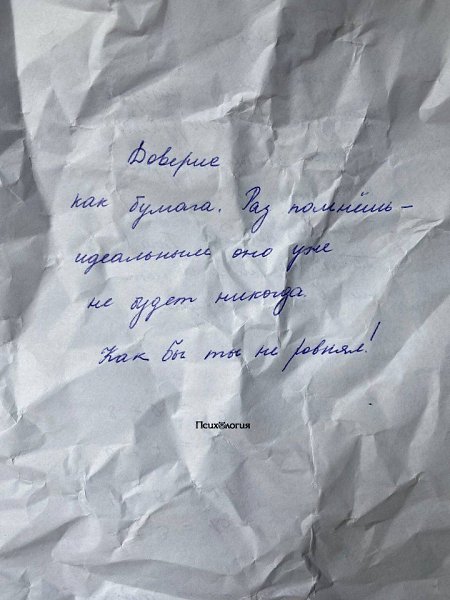 Доверие
как бумага. Раз помнёшь –
идеальным оно уже
не будет никогда.
Как бы ты не ровнял!
Психология